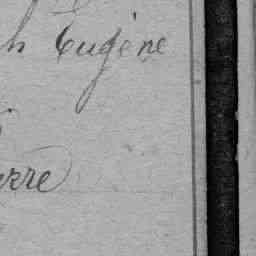 h Eugène
erre